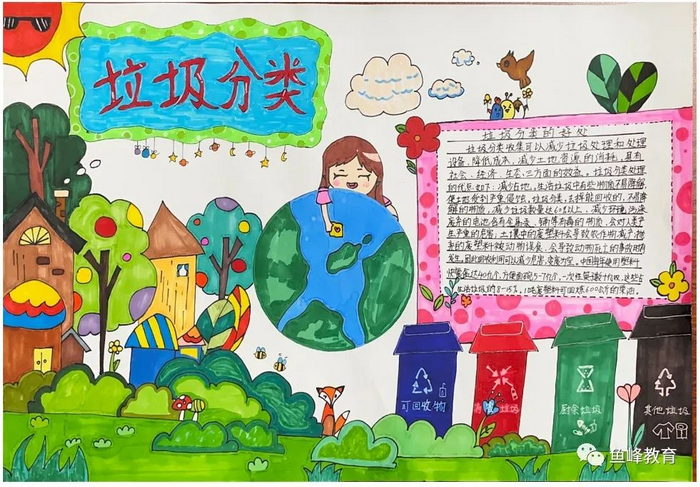 垃圾分类
垃圾分类的好处
垃圾分类收集可以减少垃圾处理和处理
设备,降低成本,减少土地资源的消耗,具有
社会、经济、生态三方面的效益。垃圾分类处理
的优点如下:减少占地,生活垃圾中有些物质不易降解,
使土地受到严重侵蚀,垃圾分类,去掉能回收的、不易降
解的物质,减少垃圾数量达60%以上,减少环境污染
废弃的电池含有金属汞、镉等有毒的物质,会对人类产
生严重的危害,土壤中的废塑料会导致农作物减产,抛
弃的废塑料被动物误食,会导致动物死亡的事故时有
发生,因此回收利用可以减少危害,变废为宝,中国每年使用塑料
快餐盒达40亿个,方便面碗5-7亿个,一次性筷子数十亿双,这些占
生活垃圾的8-15%,1吨废塑料可回炼600公斤的柴油。
可回收物
有害垃圾
厨余垃圾
其他垃圾
鱼峰教育